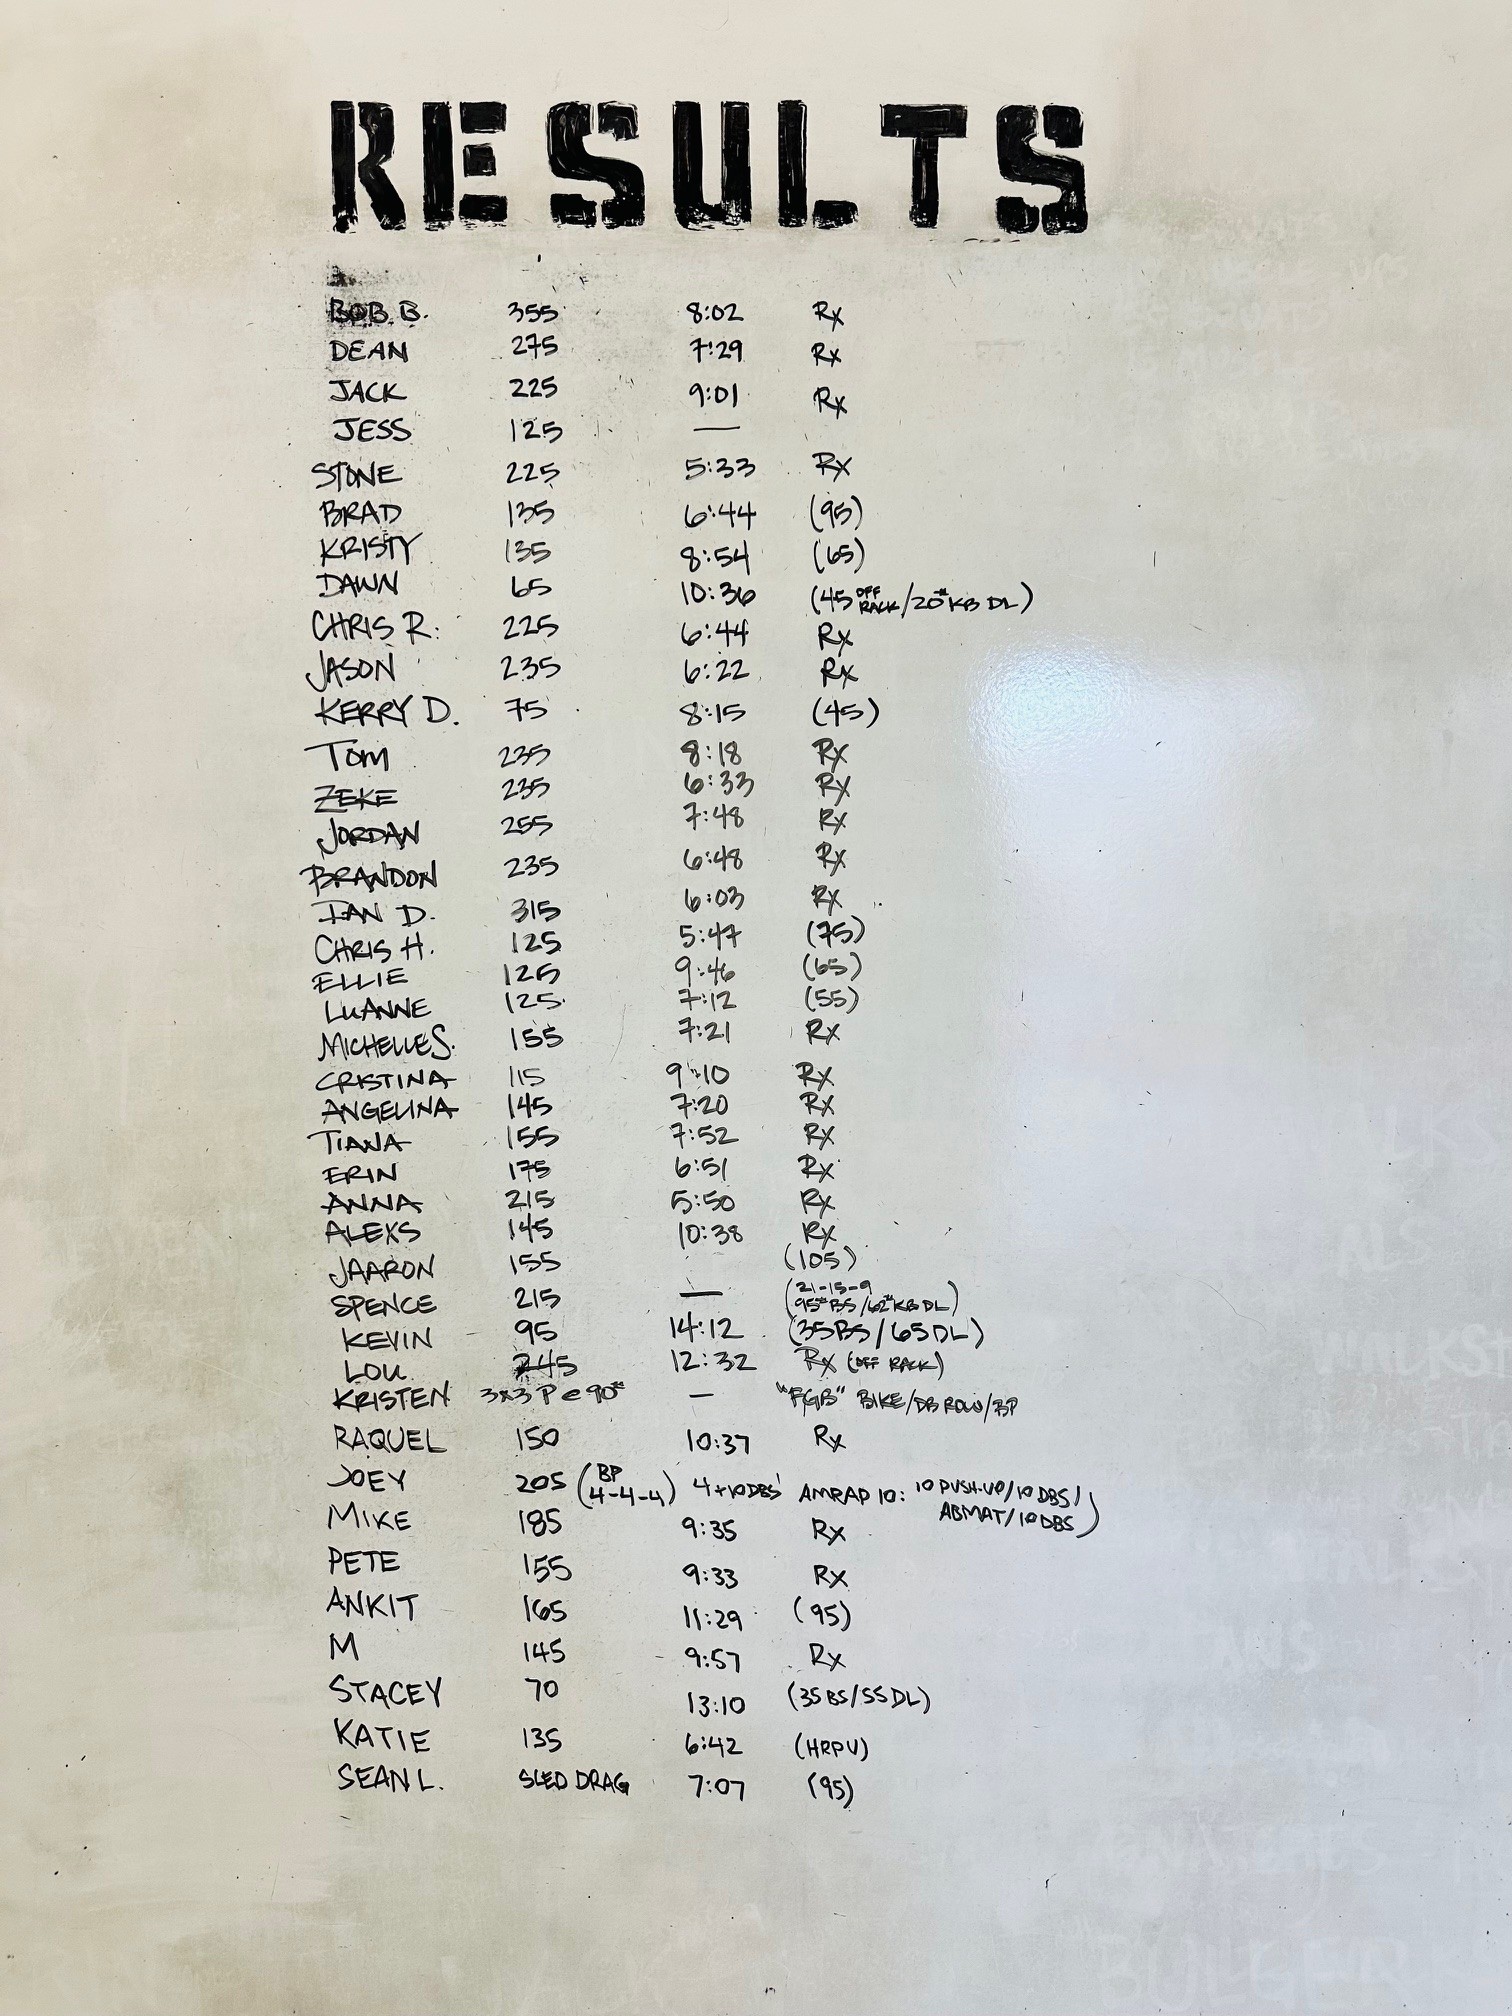 RESULTS
BOB B. 355 8:02 Rx
DEAN 275 7:29 Rx
JACK 225 9:01 Rx
JESS 125 —
STONE 225 5:33 Rx
BRAD 135 6:44 (95)
KRISTY 135 8:54 (65)
DAWN 65 10:36 (45 OFF RACK/20# KB DL)
CHRIS R. 225 6:44 Rx
JASON 235 6:22 Rx
KERRY D. 75 8:15 (45)
Tom 235 8:18 Rx
ZEKE 235 6:33 Rx
JORDAN 255 7:48 Rx
BRANDON 235 6:48 Rx
IAN D. 315 6:03 Rx
CHRIS H. 125 5:47 (75)
ELLIE 125 9:46 (65)
LUANNE 125 7:12 (55)
MICHELLE S. 155 7:21 Rx
CRISTINA 115 9:10 Rx
ANGELINA 145 7:20 Rx
TIANA 155 7:52 Rx
ERIN 175 6:51 Rx
ANNA 215 5:50 Rx
ALEXS 145 10:38 Rx
JAARON 155 (105)
SPENCE 215 — (21-15-9 95# BS/62# KB DL)
KEVIN 95 14:12 (35BS/65DL)
LOU 245 12:32 Rx (OFF RACK)
KRISTEN 3x3 P @ 90# — "FGB" BIKE/DB ROW/BP
RAQUEL 150 10:37 Rx
JOEY 205 (BP 4-4-4) 4+10DBS' AMRAP 10: 10 PUSH-UP/10 DBS/ ABMAT/10 DBS)
MIKE 185 9:35 Rx
PETE 155 9:33 Rx
ANKIT 165 11:29 (95)
M 145 9:57 Rx
STACEY 70 13:10 (35BS/55DL)
KATIE 135 6:42 (HRPU)
SEAN L. SLED DRAG 7:07 (95)